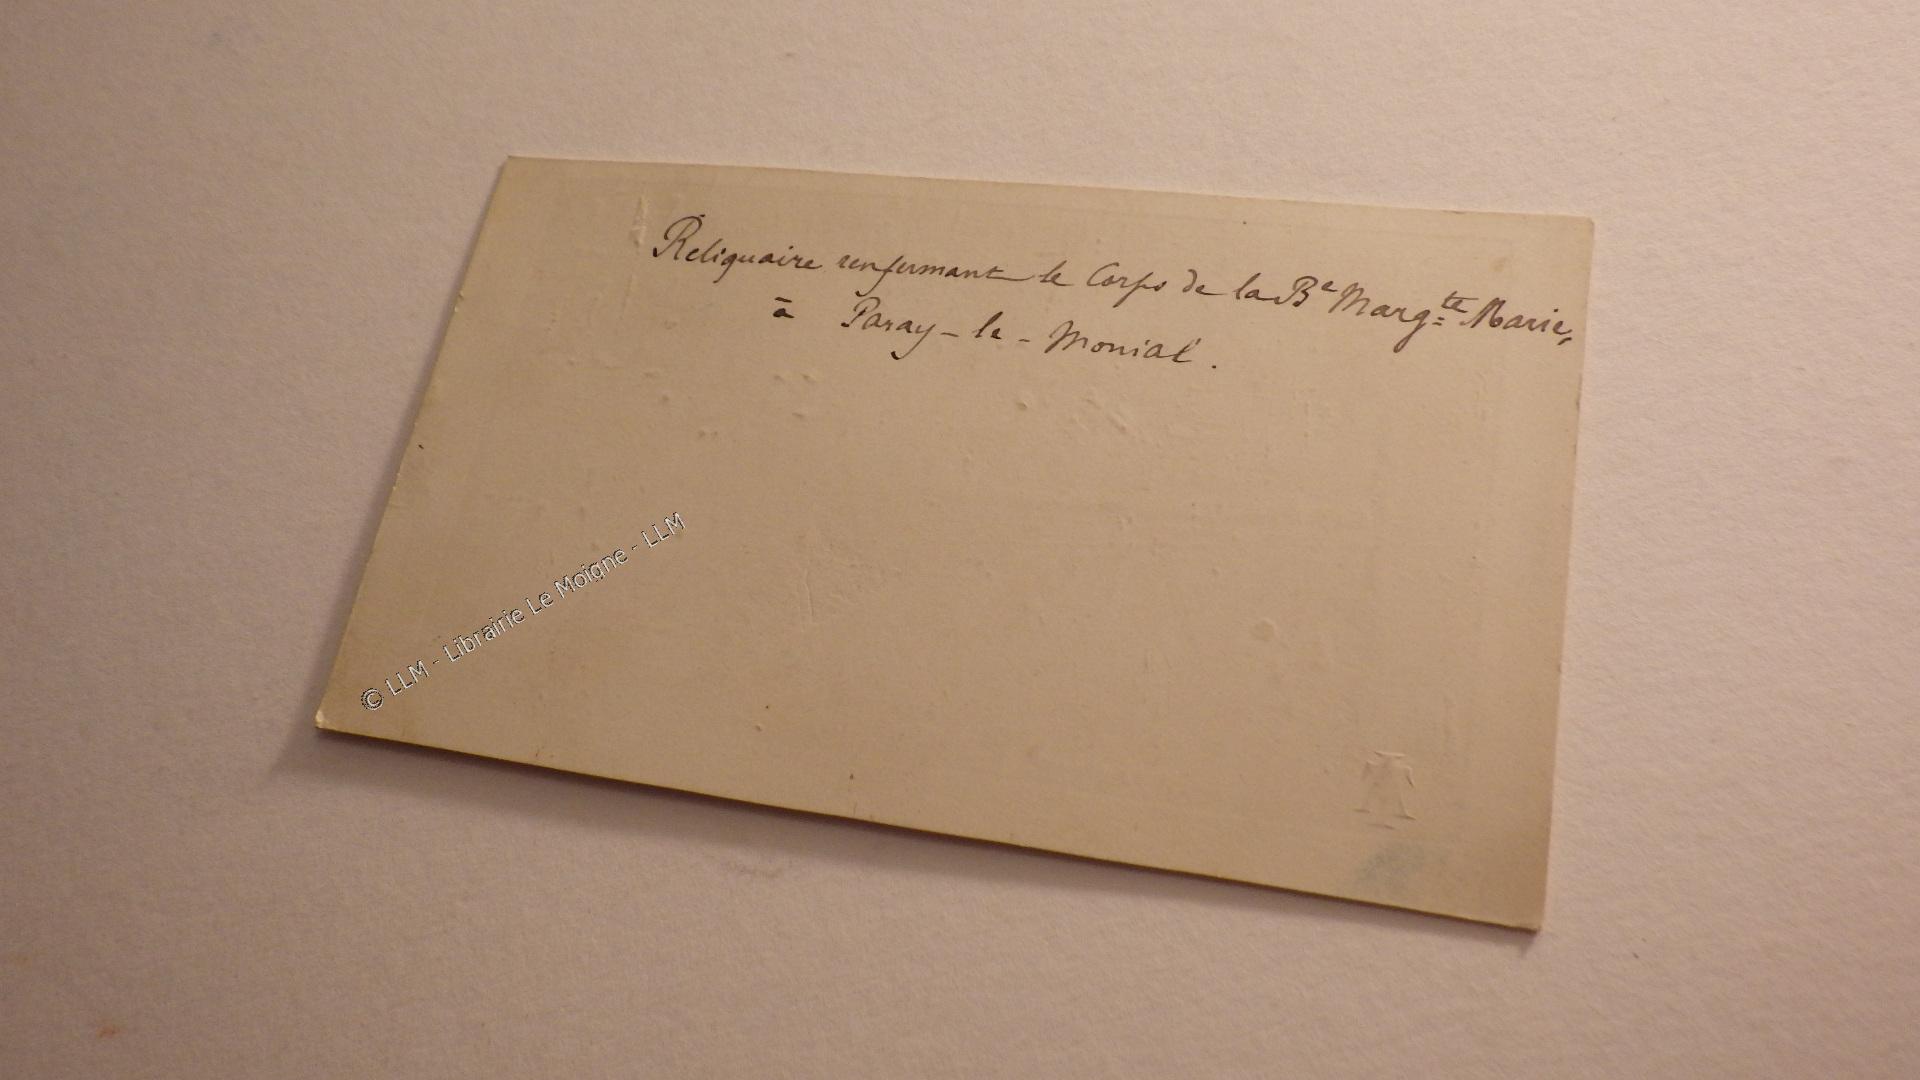 Reliquaire renfermant le Corps de la Be Marg=te Marie,
à Paray-le-Monial.
© LLM - Librairie Le Moigne - LLM